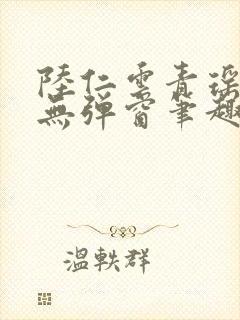 陸仁雲青瑤
無彈窗筆趣
溫軼群